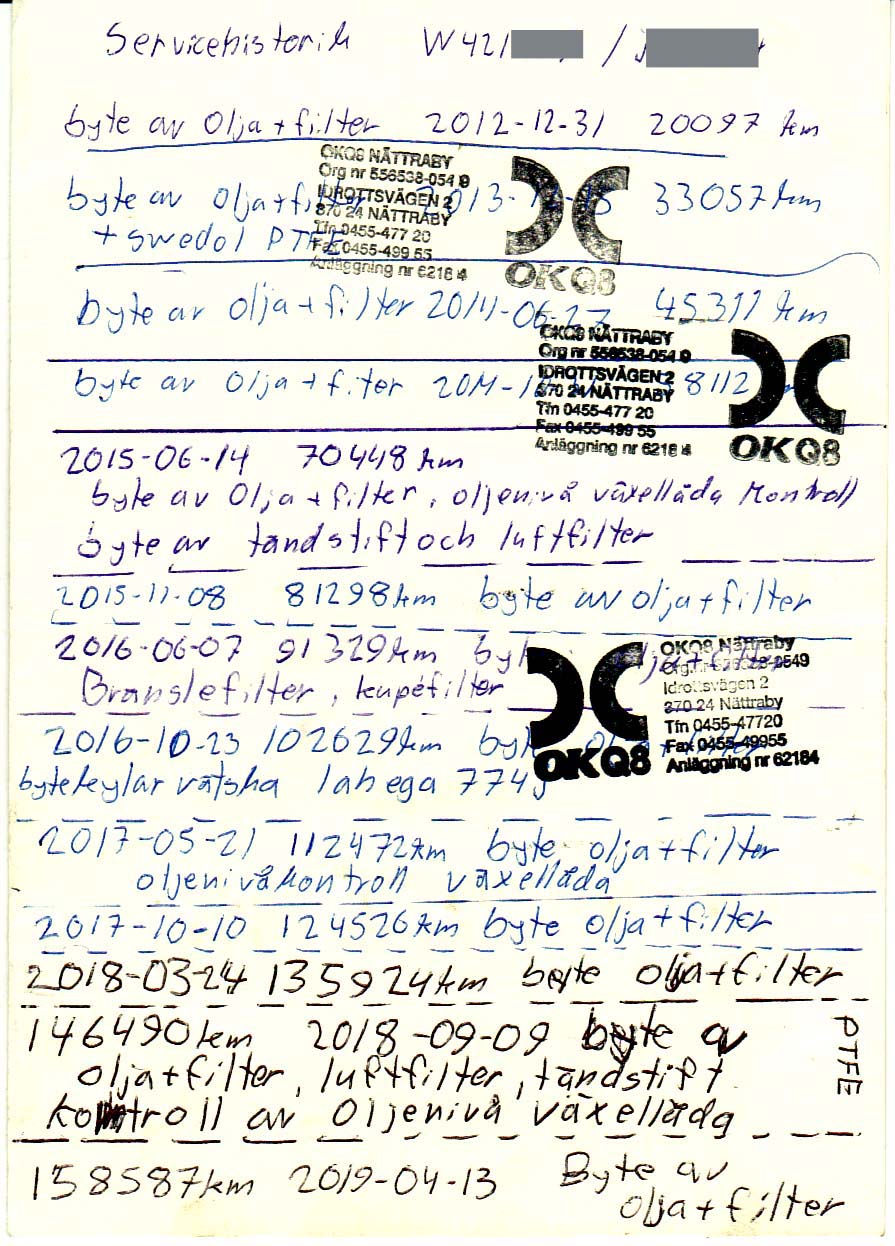 Servicehistorik W421 /
byte av olja+filter 2012-12-31 20097 km
OKQ8 NÄTTRABY
Org nr 556538-0549
IDROTTSVÄGEN 2
370 24 NÄTTRABY
Tfn 0455-477 20
Fax 0455-499 55
Anläggning nr 62184
OKQ8
byte av olja+filter 2013-12- 33057km
+ swedol PTFE
byte av olja+filter 2014-06-27 45311 km
OKQ8 NÄTTRABY
Org nr 556538-0549
IDROTTSVÄGEN 2
370 24 NÄTTRABY
Tfn 0455-477 20
Fax 0455-499 55
Anläggning nr 62184
OKQ8
byte av olja+filter 8112
2015-06-14 70448 km
byte av olja+filter, oljenivå växellåda kontroll
byte av tändstift och luftfilter
2015-11-08 81298km byte av olja+filter
2016-06-07 91329km byte olja+filter
Bränslefilter, kupéfilter
OKQ8
OKQ8 Nättraby
Org.nr 556538-0549
Idrottsvägen 2
370 24 Nättraby
Tfn 0455-47720
Fax 0455-49955
Anläggning nr 62184
2016-10-23 102629km byte olja+filter
byte kylar vätska lahega 774
2017-05-21 112472km byte olja+filter
oljenivåkontroll växellåda
2017-10-10 124526km byte olja+filter
2018-03-24 135924km byte olja+filter
146490km 2018-09-09 byte av
olja+filter, luftfilter, tändstift
kontroll av Oljenivå växellåda
PTFE
158587km 2019-04-13 Byte av
olja+filter